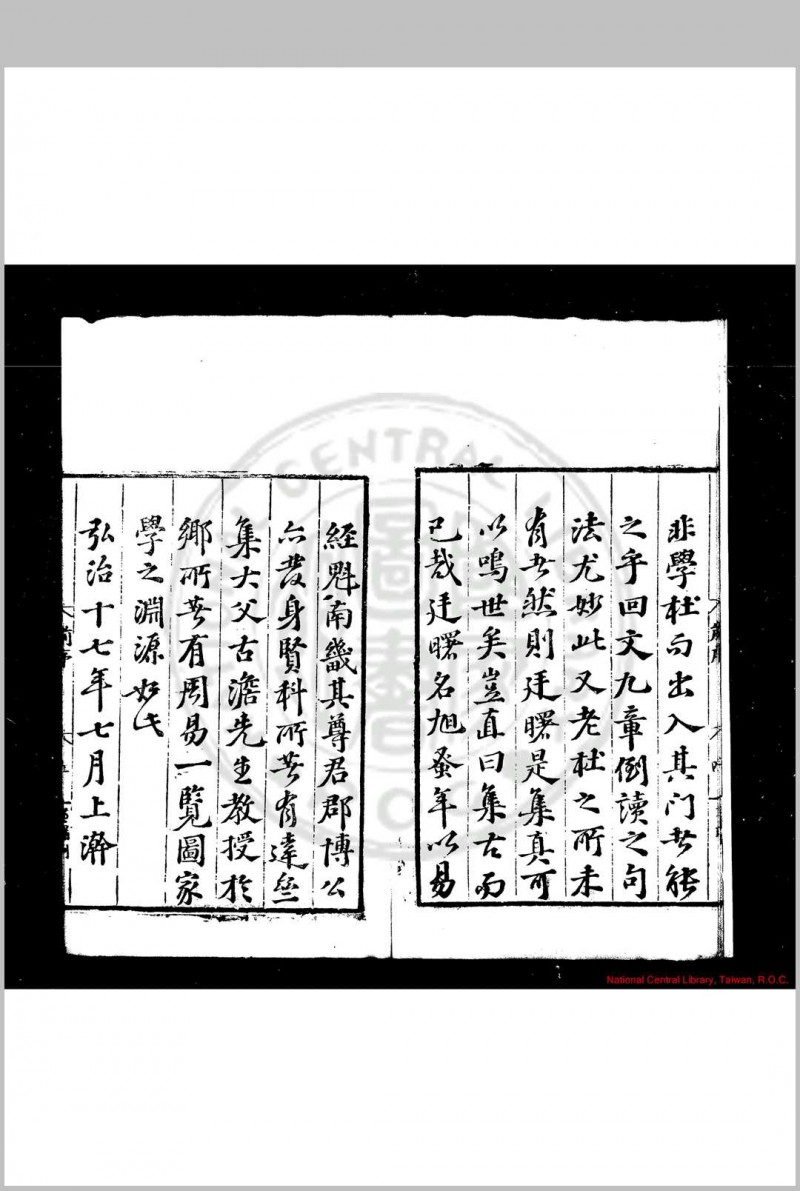 非學杜而出入其门者能
之乎回文九章倒讀之句
法尤妙此又老杜之所未
有者然則廷曙是集真可
以鳴世矣豈直曰集古而
已哉廷曙名旭蚤年以易
經魁南畿其尊君郡博公
六發身賢科所著有達
集大父古澹先生教授於
鄉所著有周易一覽圖家
學之淵源如此
弘治十七年七月上澣
CENTRAL
圖書
National Central Library, Taiwan, R.O.C.